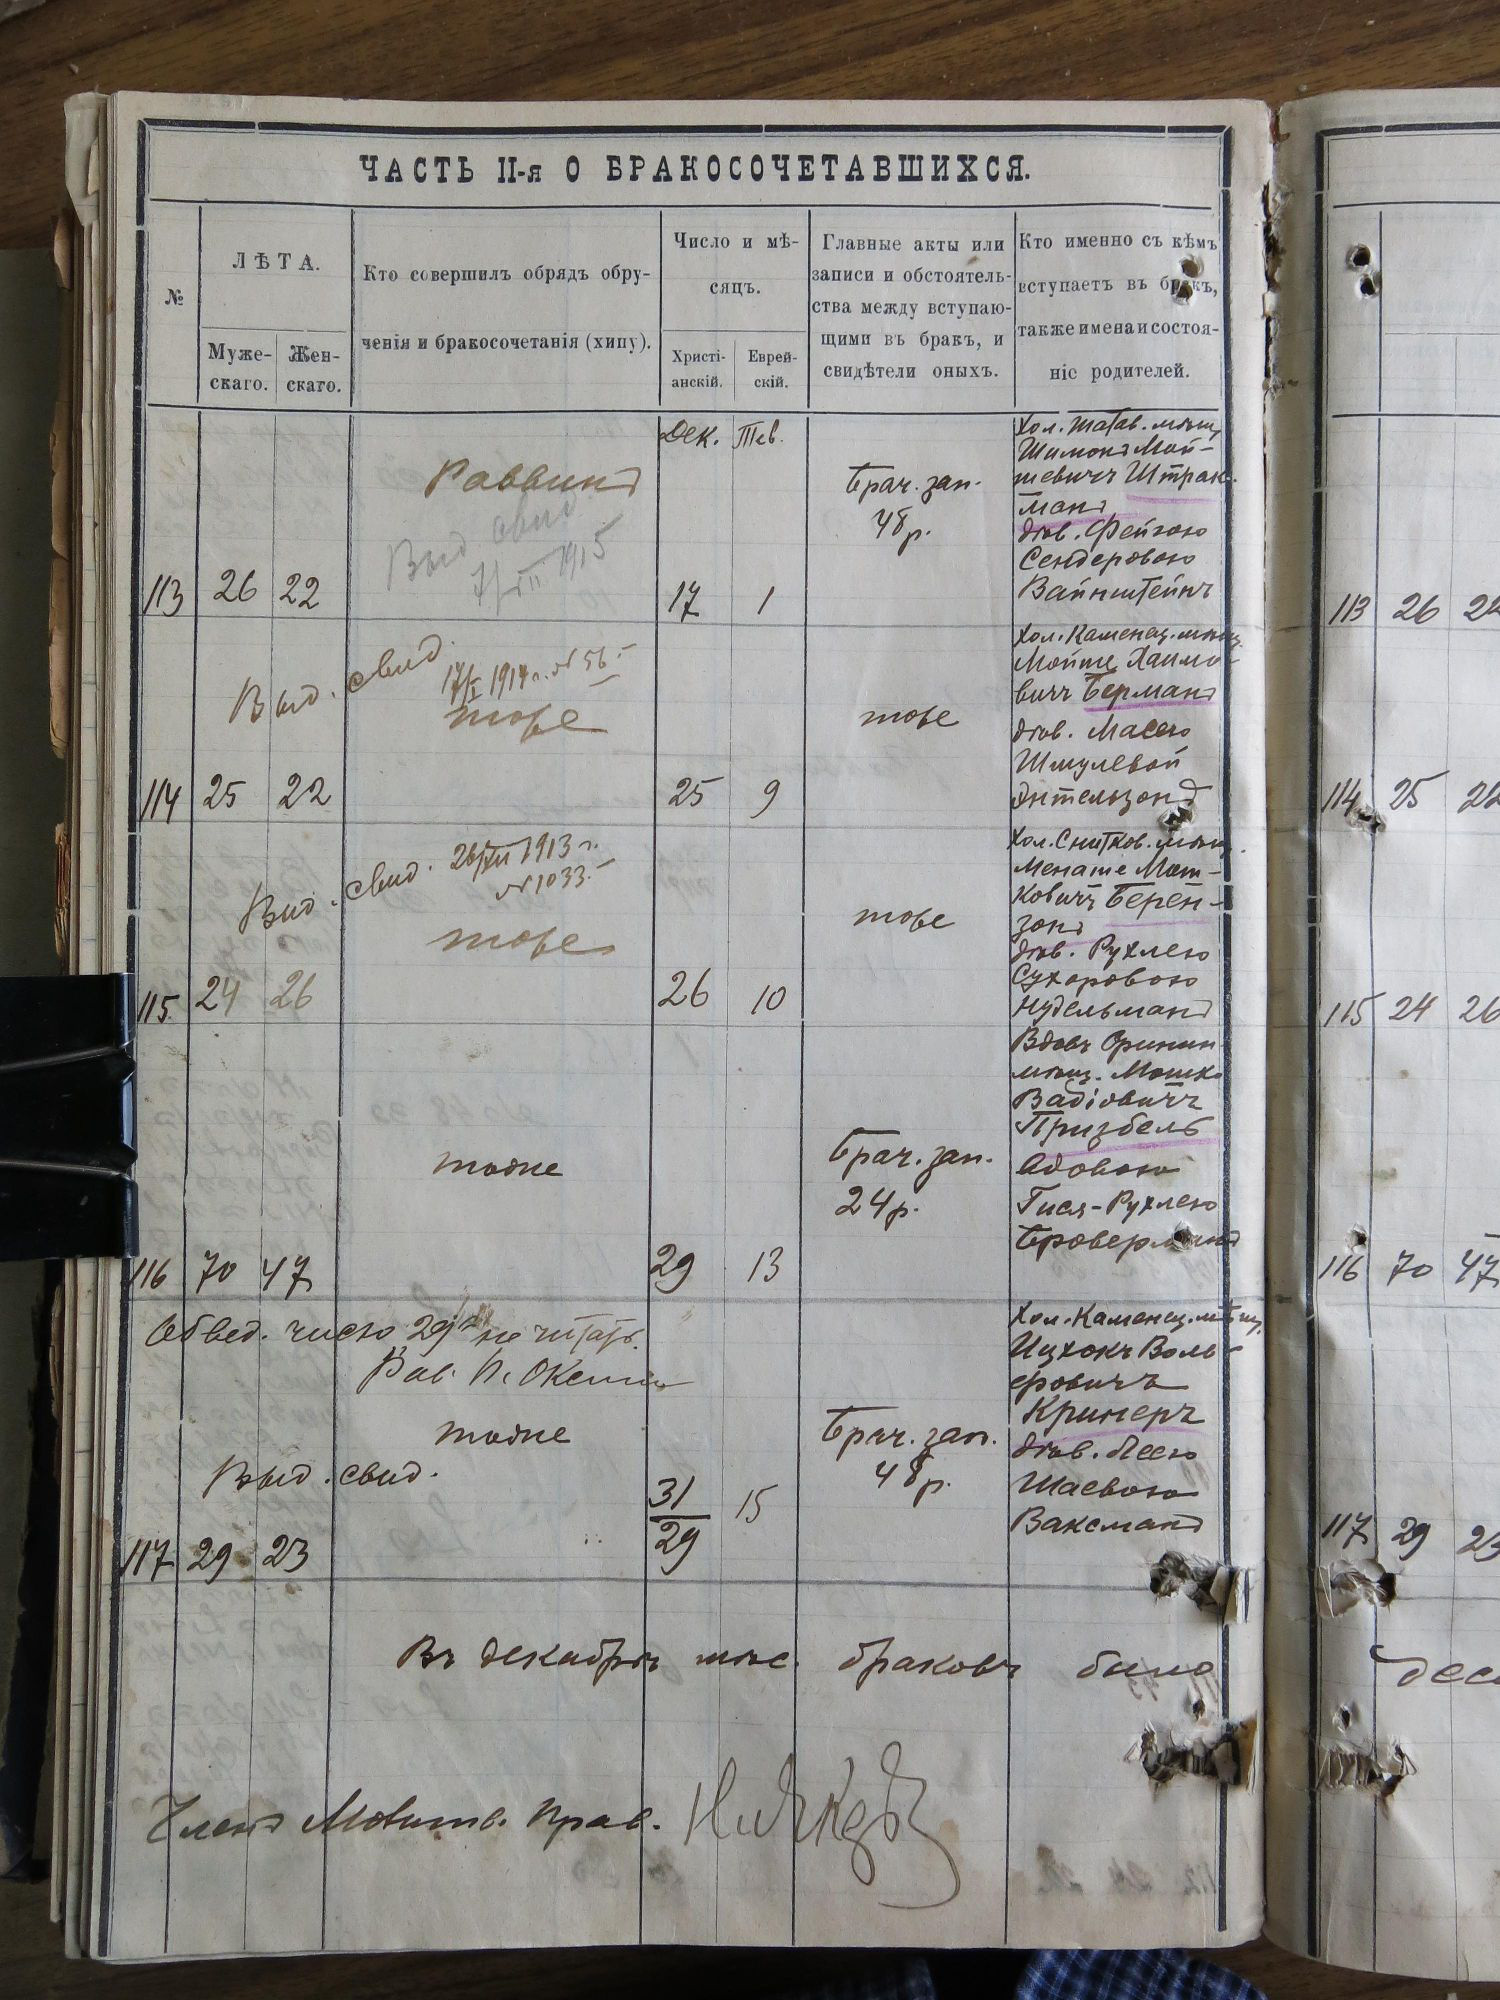 ЧАСТЬ II-я О БРАКОСОЧЕТАВШИХСЯ.
№
ЛѢТА.
Муже-
скаго.
Жен-
скаго.
Кто совершилъ обрядъ обру-
ченія и бракосочетанія (хипу).
Число и мѣ-
сяцъ.
Христі-
анскій.
Еврей-
скій.
Главные акты или
записи и обстоятель-
ства между вступаю-
щими въ бракъ, и
свидѣтели оныхъ.
Кто именно съ кѣмъ
вступаетъ въ бракъ,
также имена и состоя-
ніе родителей.
Дек. Тев.
113 26 22
Раввинъ
Выд свид
7/VII 1915
17 1
Брач. зап.
48 р.
Хол. Шатав. мѣщ
Шимонъ Мой-
шевичъ Штрак-
манъ
дѣв. Фейгою
Сендеровою
Вайнштейнъ
114 25 22
Выд. свид.
17/I 1914 г. № 56
тоже
25 9
тоже
Хол. Каменец. мѣщ.
Мойше Хаимо-
вичъ Берманъ
дѣв. Масею
Шмулевой
Энтельзонъ
115 24 26
Выд. свид. 26/XII 1913 г.
№ 1033.
тоже
26 10
тоже
Хол. Снитков. мѣщ.
Менаше Мот-
ковичъ Берен-
зонъ
дѣв. Рухлею
Сухаровою
Нудельманъ
116 70 47
тоже
29 13
Брач. зап.
24 р.
Вдовъ Оринин
мѣщ. Мошко
Призбель
вдовою
Гися-Рухлею
Броверманъ
Обвед. число 29 не читать.
Рав.
117 29 23
тоже
Выд. свид.
31
29
15
Брач. зап.
48 р.
Хол. Каменец. мѣщ.
Ицхокъ Воль-
еровичъ
Кримеръ
дѣв. Лею
Шаевою
Ваксманъ
Въ декабрѣ мѣс. браковъ было
Членъ Молитв. Прав.
113 26 22
114 25 22
115 24 26
116 70 47
117 29 23